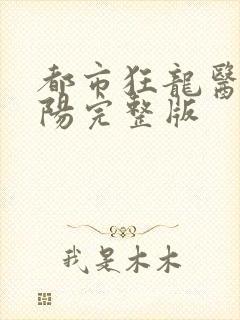 都市狂龍醫
陽完整版
我是木木